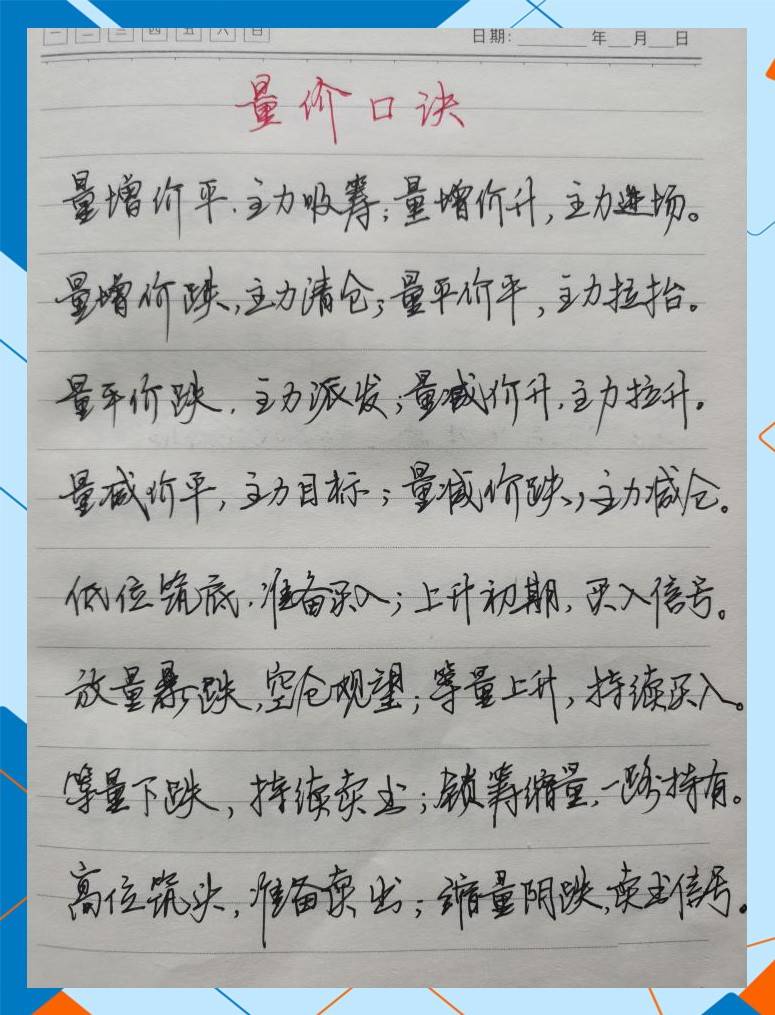 一 二 三 四 五 六 日 日期: 年 月 日
量价口诀
量增价平,主力吸筹;量增价升,主力进场。
量增价跌,主力清仓;量平价平,主力拉抬。
量平价跌,主力派发;量减价升,主力拉升。
量减价平,主力目标;量减价跌,主力减仓。
低位筑底,准备买入;上升初期,买入信号。
放量暴跌,空仓观望;等量上升,持续买入。
等量下跌,持续卖出;锁筹缩量,一路持有。
高位筑头,准备卖出;缩量阴跌,卖出信号。